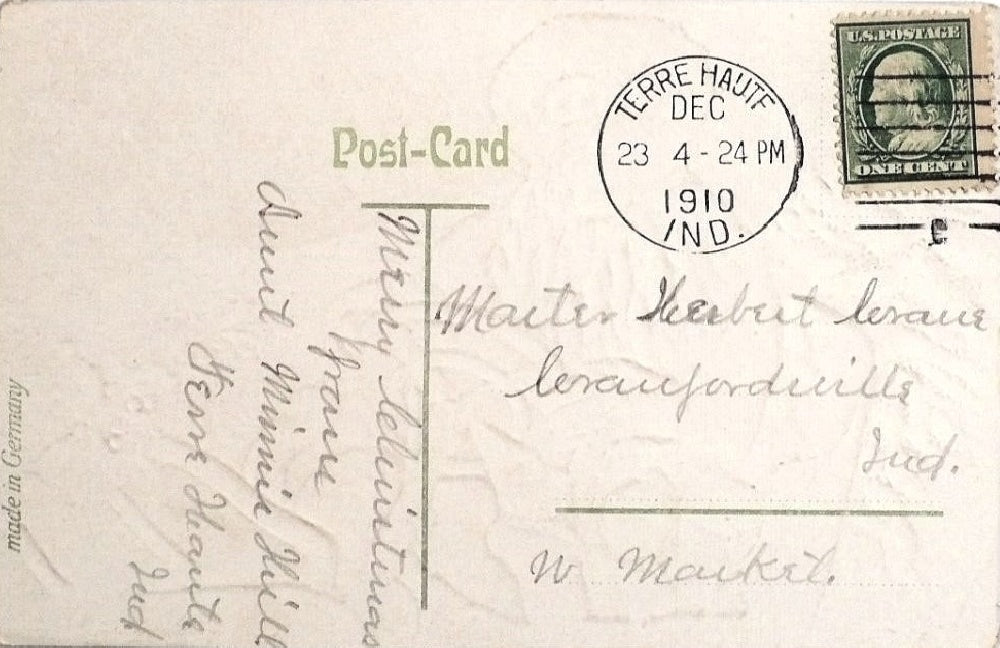 U.S. POSTAGE
ONE CENT
TERRE HAUTE
DEC
23 4-24 PM
1910
IND.
Post-Card
Master Herbert Crane
Crawfordsville
Ind.
W Market.
Merry Christmas
from
Aunt Minnie Hill
Terre Haute
Ind
made in Germany